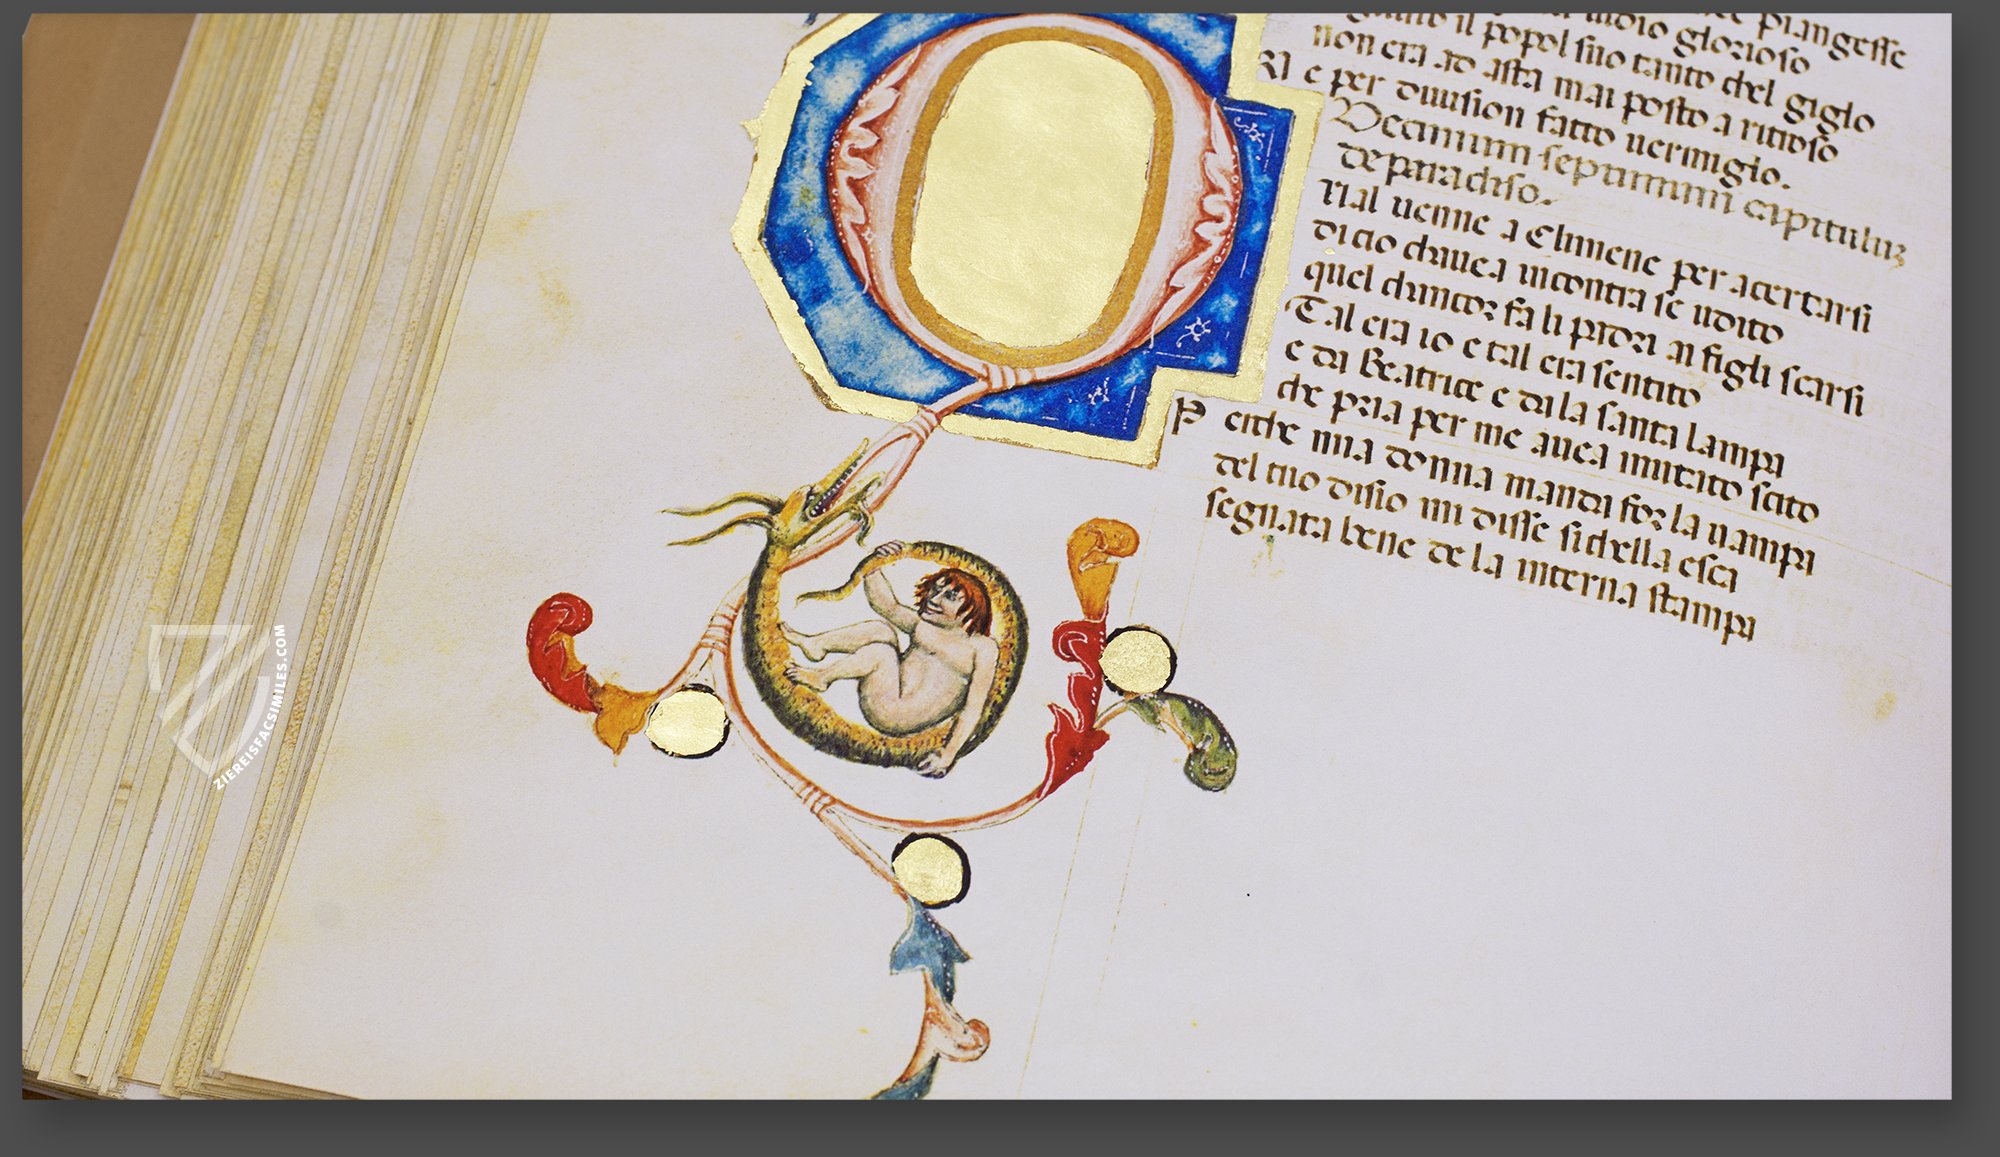 piangesse
il popol suo tanto che'l giglo
glorioso
non era ad asta mai posto a ritroso
Ri e per diuision fatto uermiglo.
Decimum septimum capitulum
de paradiso.
Nal uenne a Climene per acertarsi
di cio chauea incontra se udito
quel chancor fa li padri ai figli scarsi
Tal era io e tal era sentito
e da Beatrice e da la santa lampa
che pria per me auea mutato scito
P erche mia donna manda for la uampa
del tuo disio mi disse si chella esca
segnata bene de la interna stampa
ZIEREISFACSIMILES.COM